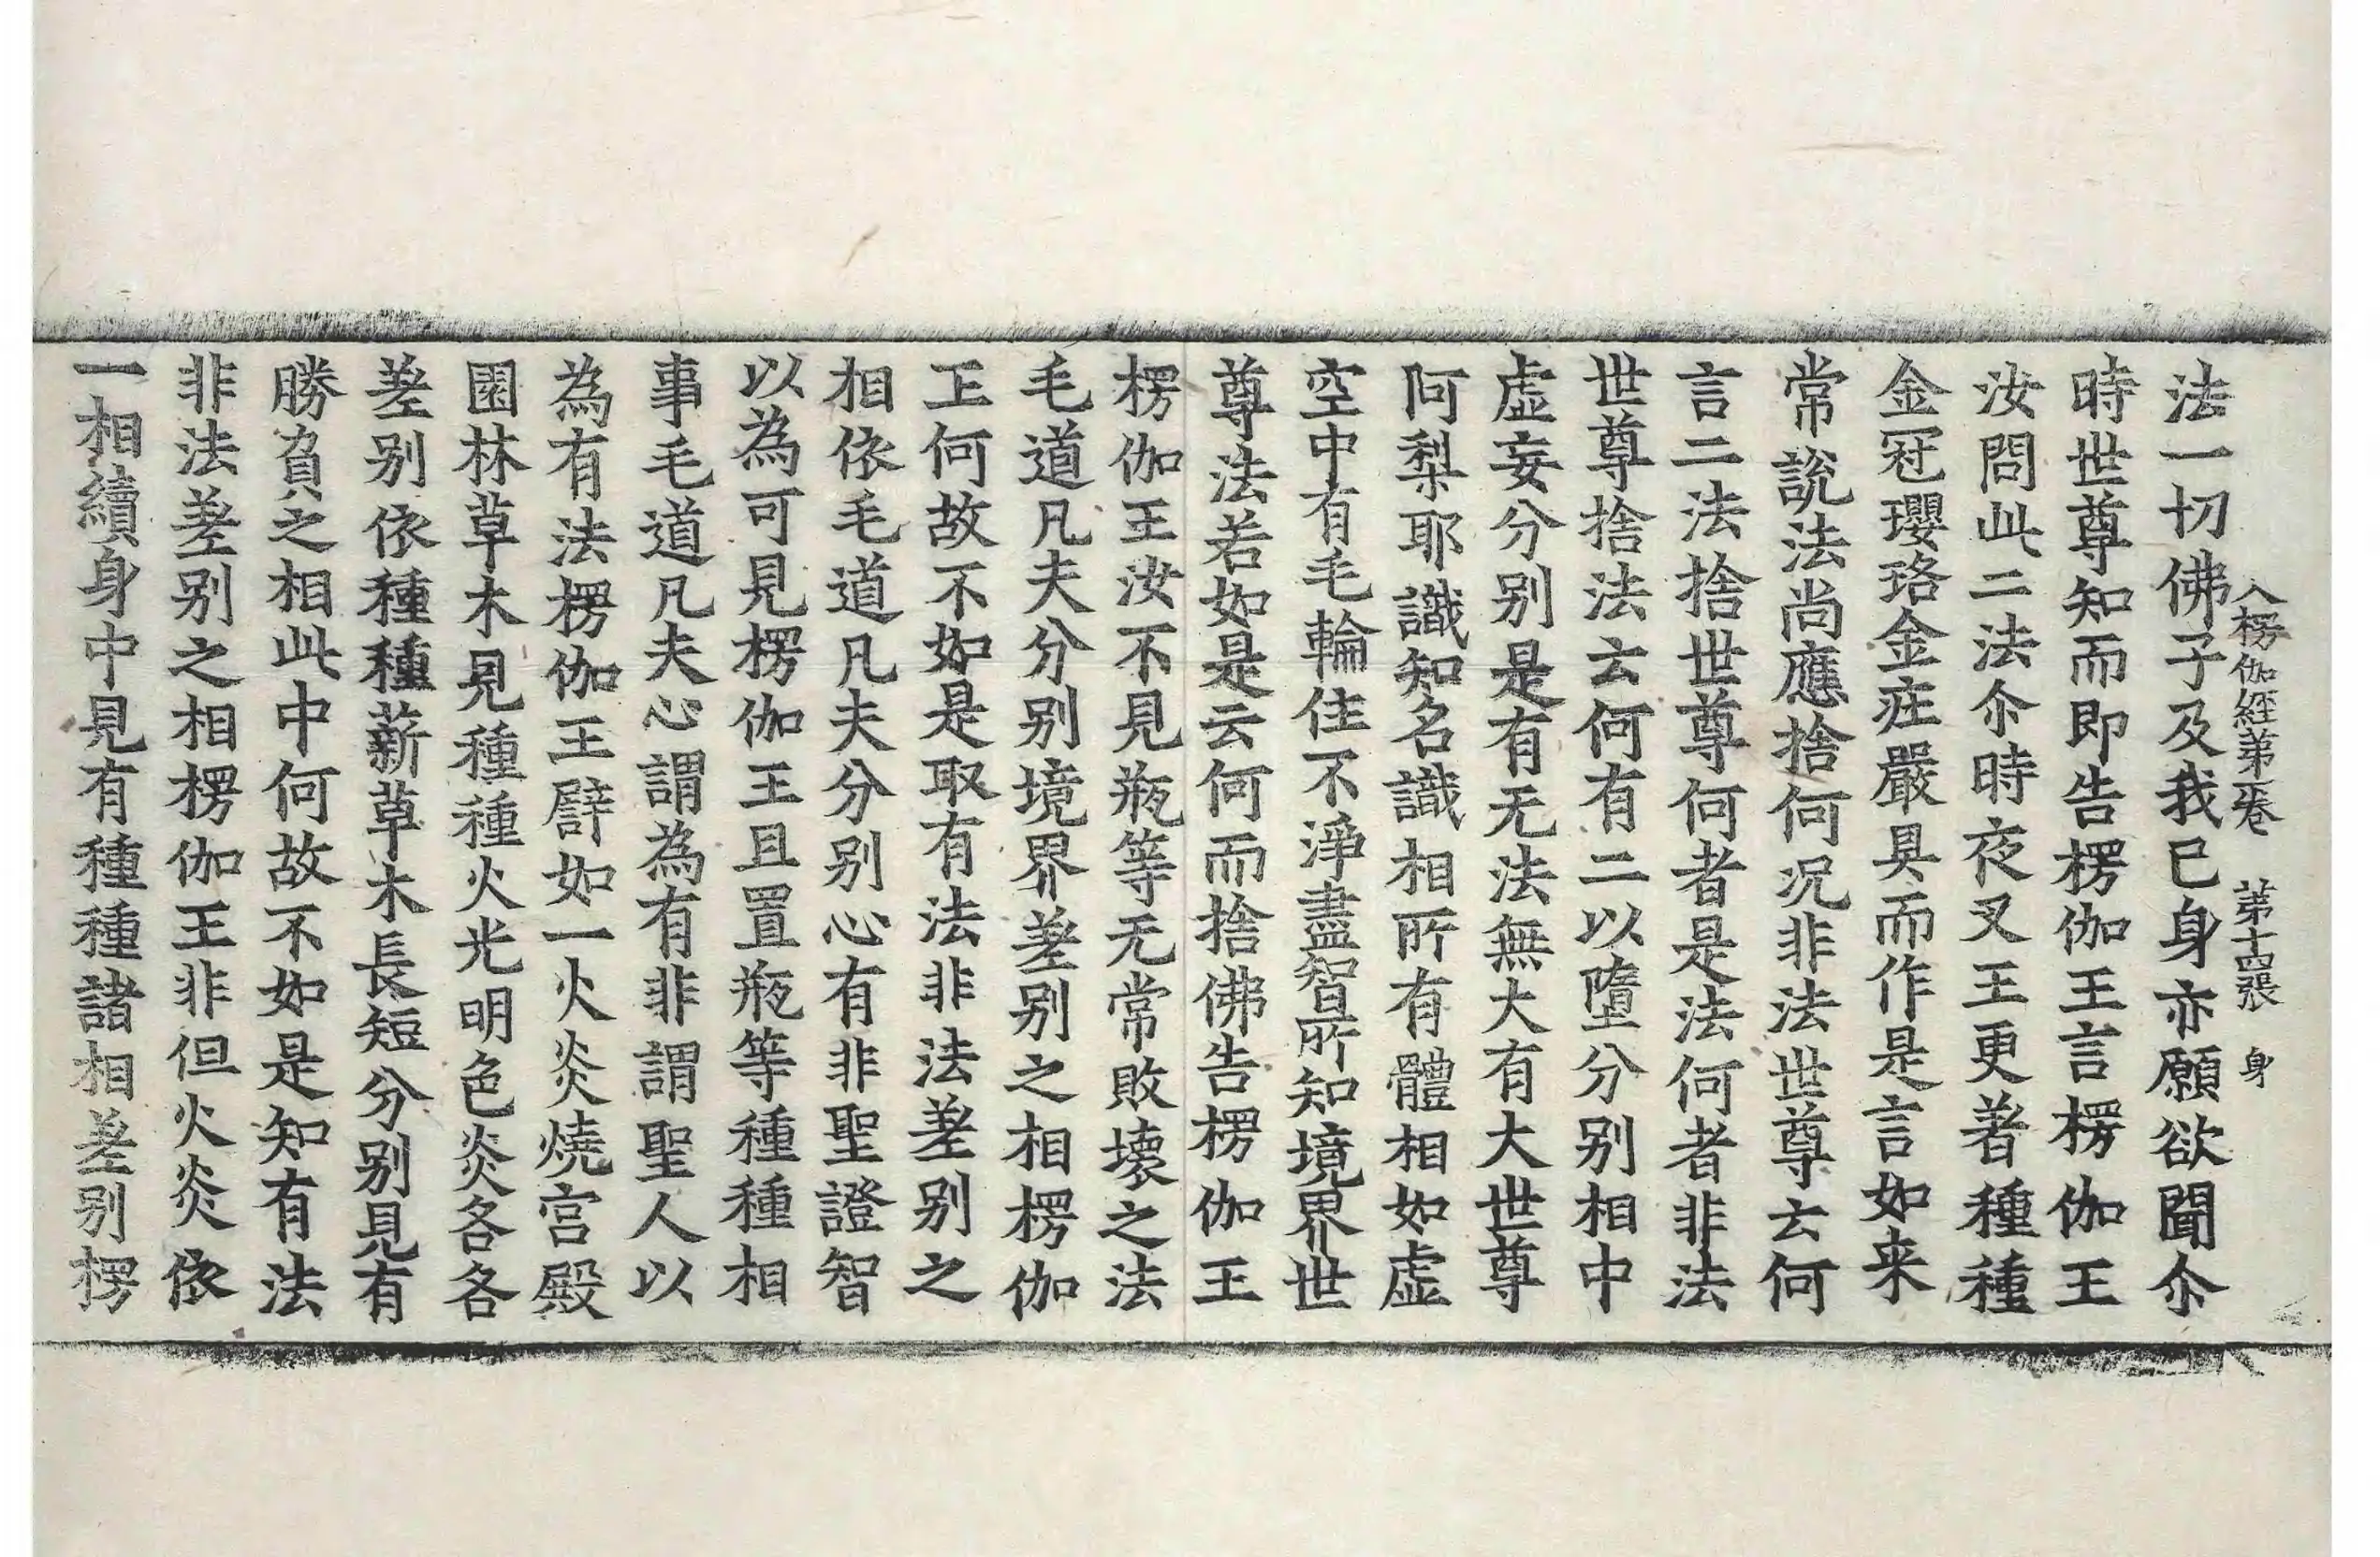 入楞伽經第一卷 第十四張 身
法一切佛子及我已身亦願欲聞尒
時世尊知而即告楞伽王言楞伽王
汝問此二法尒時夜叉王更著種種
金冠瓔珞金莊嚴具而作是言如来
常說法尚應捨何况非法世尊云何
言二法捨世尊何者是法何者非法
世尊捨法云何有二以墮分别相中
虚妄分别是有无法無大有大世尊
阿梨耶識知名識相所有體相如虚
空中有毛輪住不淨盡智所知境界世
尊法若如是云何而捨佛告楞伽王
楞伽王汝不見瓶等无常敗壞之法
毛道凡夫分别境界差别之相楞伽
王何故不如是取有法非法差别之
相依毛道凡夫分别心有非聖證智
以為可見楞伽王且置瓶等種種相
事毛道凡夫心謂為有非謂聖人以
為有法楞伽王譬如一火炎燒宫殿
園林草木見種種火光明色炎各各
差别依種種薪草木長短分别見有
勝負之相此中何故不如是知有法
非法差别之相楞伽王非但火炎依
一相續身中見有種種諸相差别楞